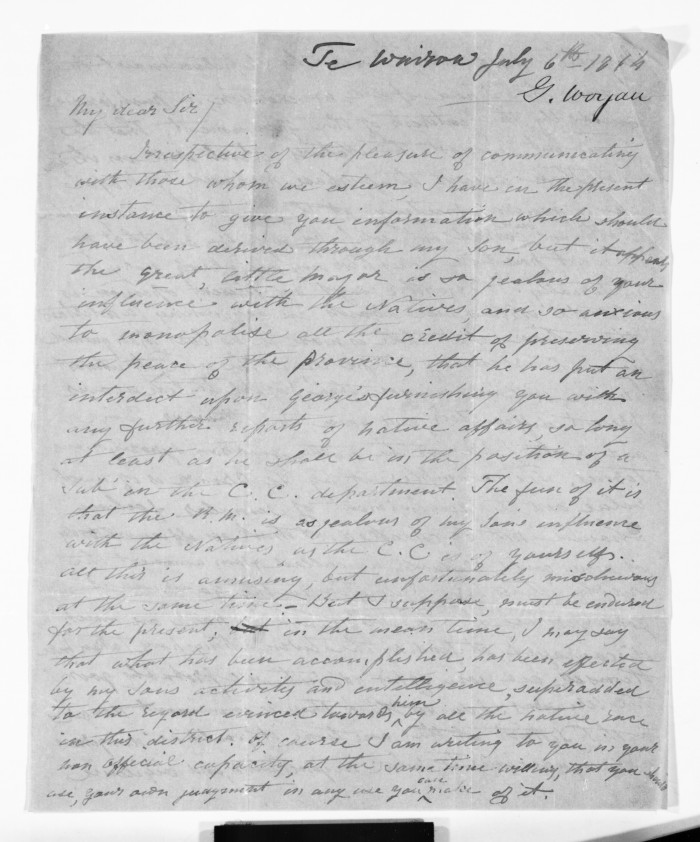 Te Wairoa July 6th 1864
G. Worgan
My dear Sir/
Irrespective of the pleasure of communicating
with those whom we esteem, I have in the present
instance to give you information which should
have been derived through my Son, but it appears
the great, little Major is so jealous of your
influence with the Natives, and so anxious
to monopolise all the credit of preserving
the peace of the Province, that he has put an
interdict upon George's furnishing you with
any further reports of native affairs, so long
at least as he shall be in the position of a
Sub' in the C. C. department. The fun of it is
that the R.M. is as jealous of my Sons influence
with the Natives as the C.C is of yourself.
all this is amusing, but unfortunately mischievous
at the same time. - But I suppose, must be endured
for the present, in the mean time, I may say
that what has been accomplished, has been effected
by my Sons activity and intelligence, superadded
to the regard evinced towards him by all the native race
in this district. Of course I am writing to you in your
non official capacity, at the same time willing, that you should
use, your own judgment in any use you can make of it.